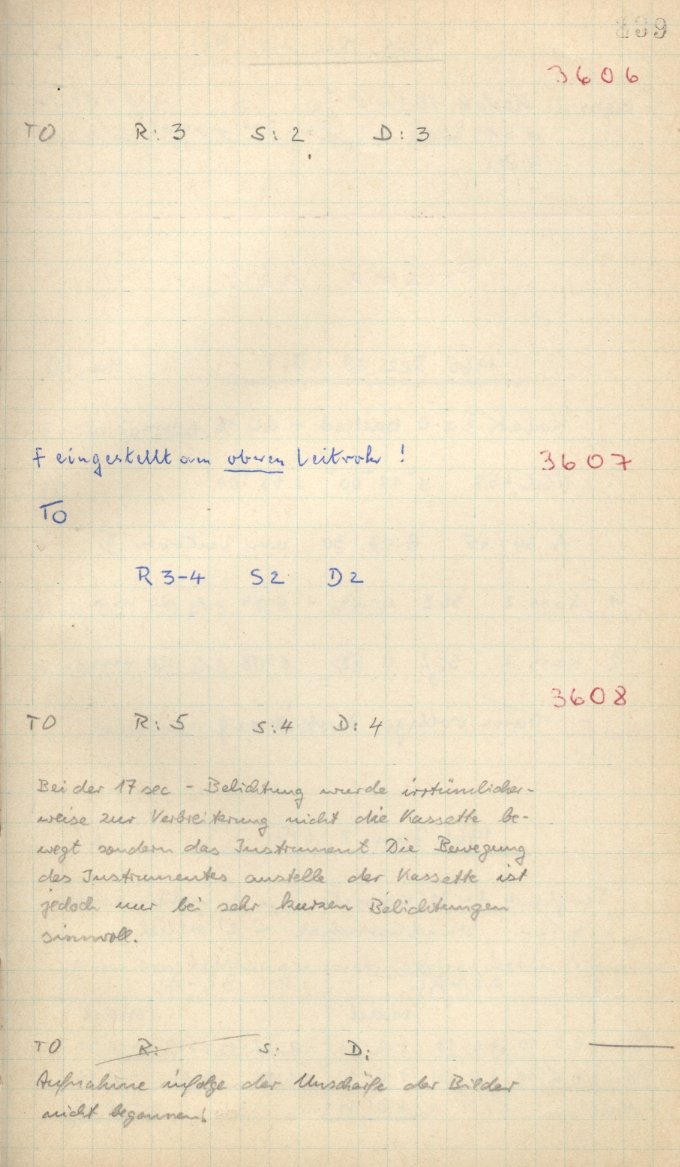 3606
TO R: 3 S: 2 D: 3
f eingestellt am oberen Leitrohr !
3607
TO
R 3-4 S2 D2
3608
TO R: 5 S: 4 D: 4
Bei der 17 sec - Belichtung wurde irrtümlicher-
weise zur Verbreiterung nicht die Kassette be-
wegt sondern das Instrument. Die Bewegung
des Instrumentes anstelle der Kassette ist
jedoch nur bei sehr kurzen Belichtungen
sinnvoll.
TO R: S: D:
Aufnahme infolge der Unschärfe der Bilder
nicht begonnen!